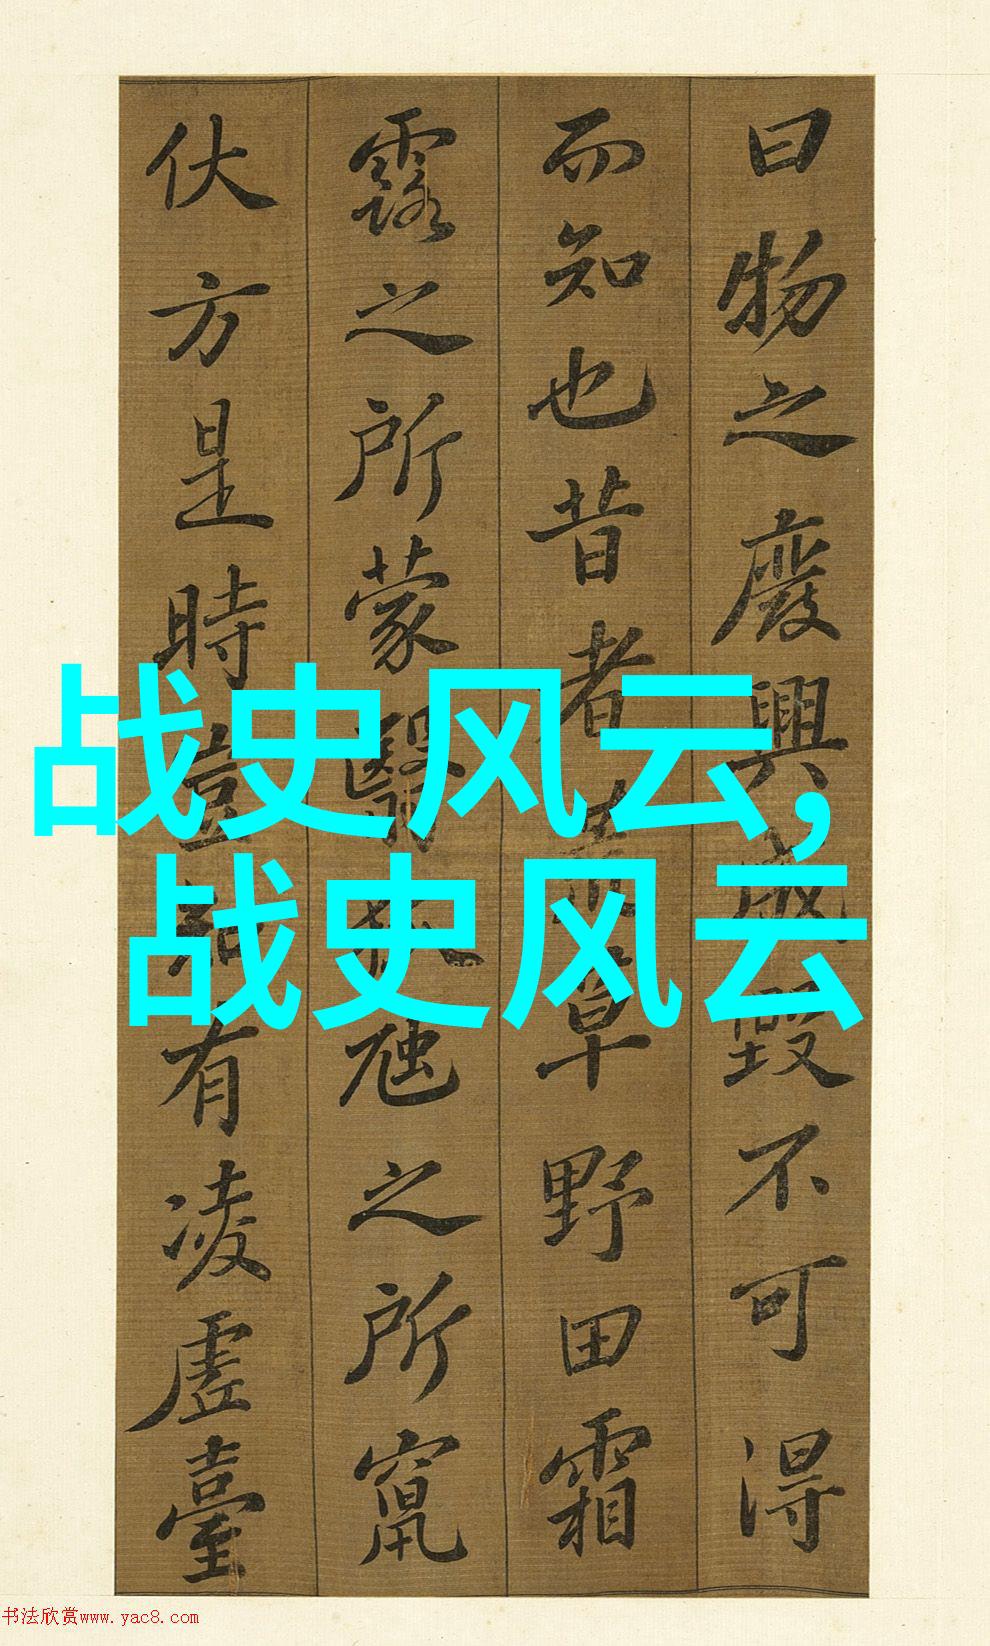 曰物之廢興成毀不可得
而知也昔者荒草野田霜
露之所蒙翳狐虺之所竄
伏方是時豈知有凌虛臺
战史风云,
战史风云
书法欣赏www.yac8.com